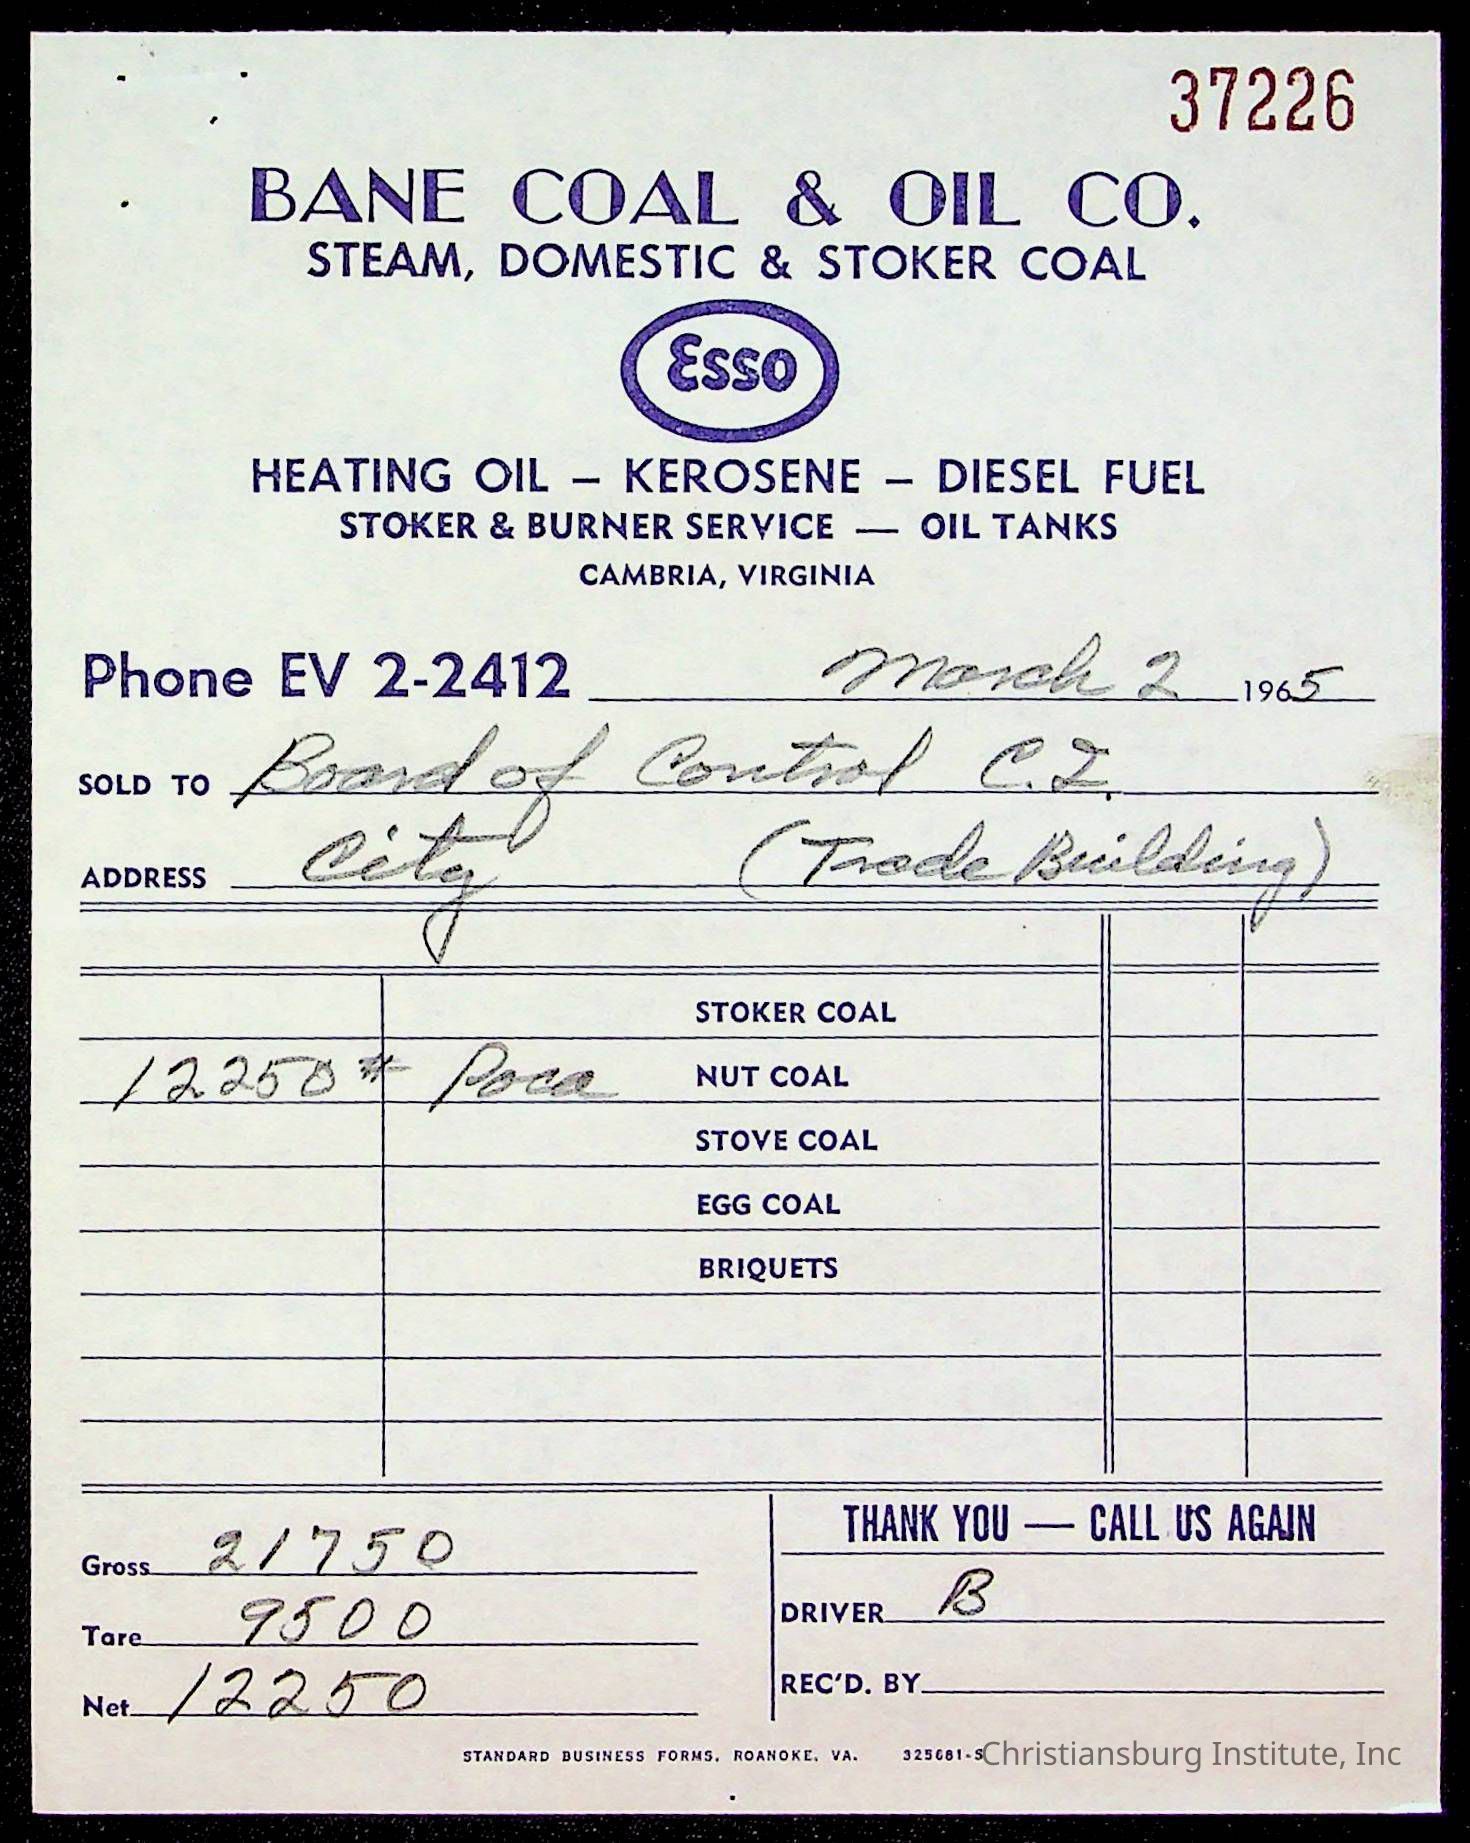 37226
BANE COAL & OIL CO.
STEAM, DOMESTIC & STOKER COAL
Esso
HEATING OIL – KEROSENE – DIESEL FUEL
STOKER & BURNER SERVICE — OIL TANKS
CAMBRIA, VIRGINIA
Phone EV 2-2412 March 2 1965
SOLD TO Board of Control C.I.
ADDRESS City (Trade Building)
STOKER COAL
12250 # Poca NUT COAL
STOVE COAL
EGG COAL
BRIQUETS
THANK YOU — CALL US AGAIN
Gross 21750
DRIVER B
Tare 9500
REC'D. BY
Net 12250
STANDARD BUSINESS FORMS, ROANOKE, VA. 325681-S
Christiansburg Institute, Inc